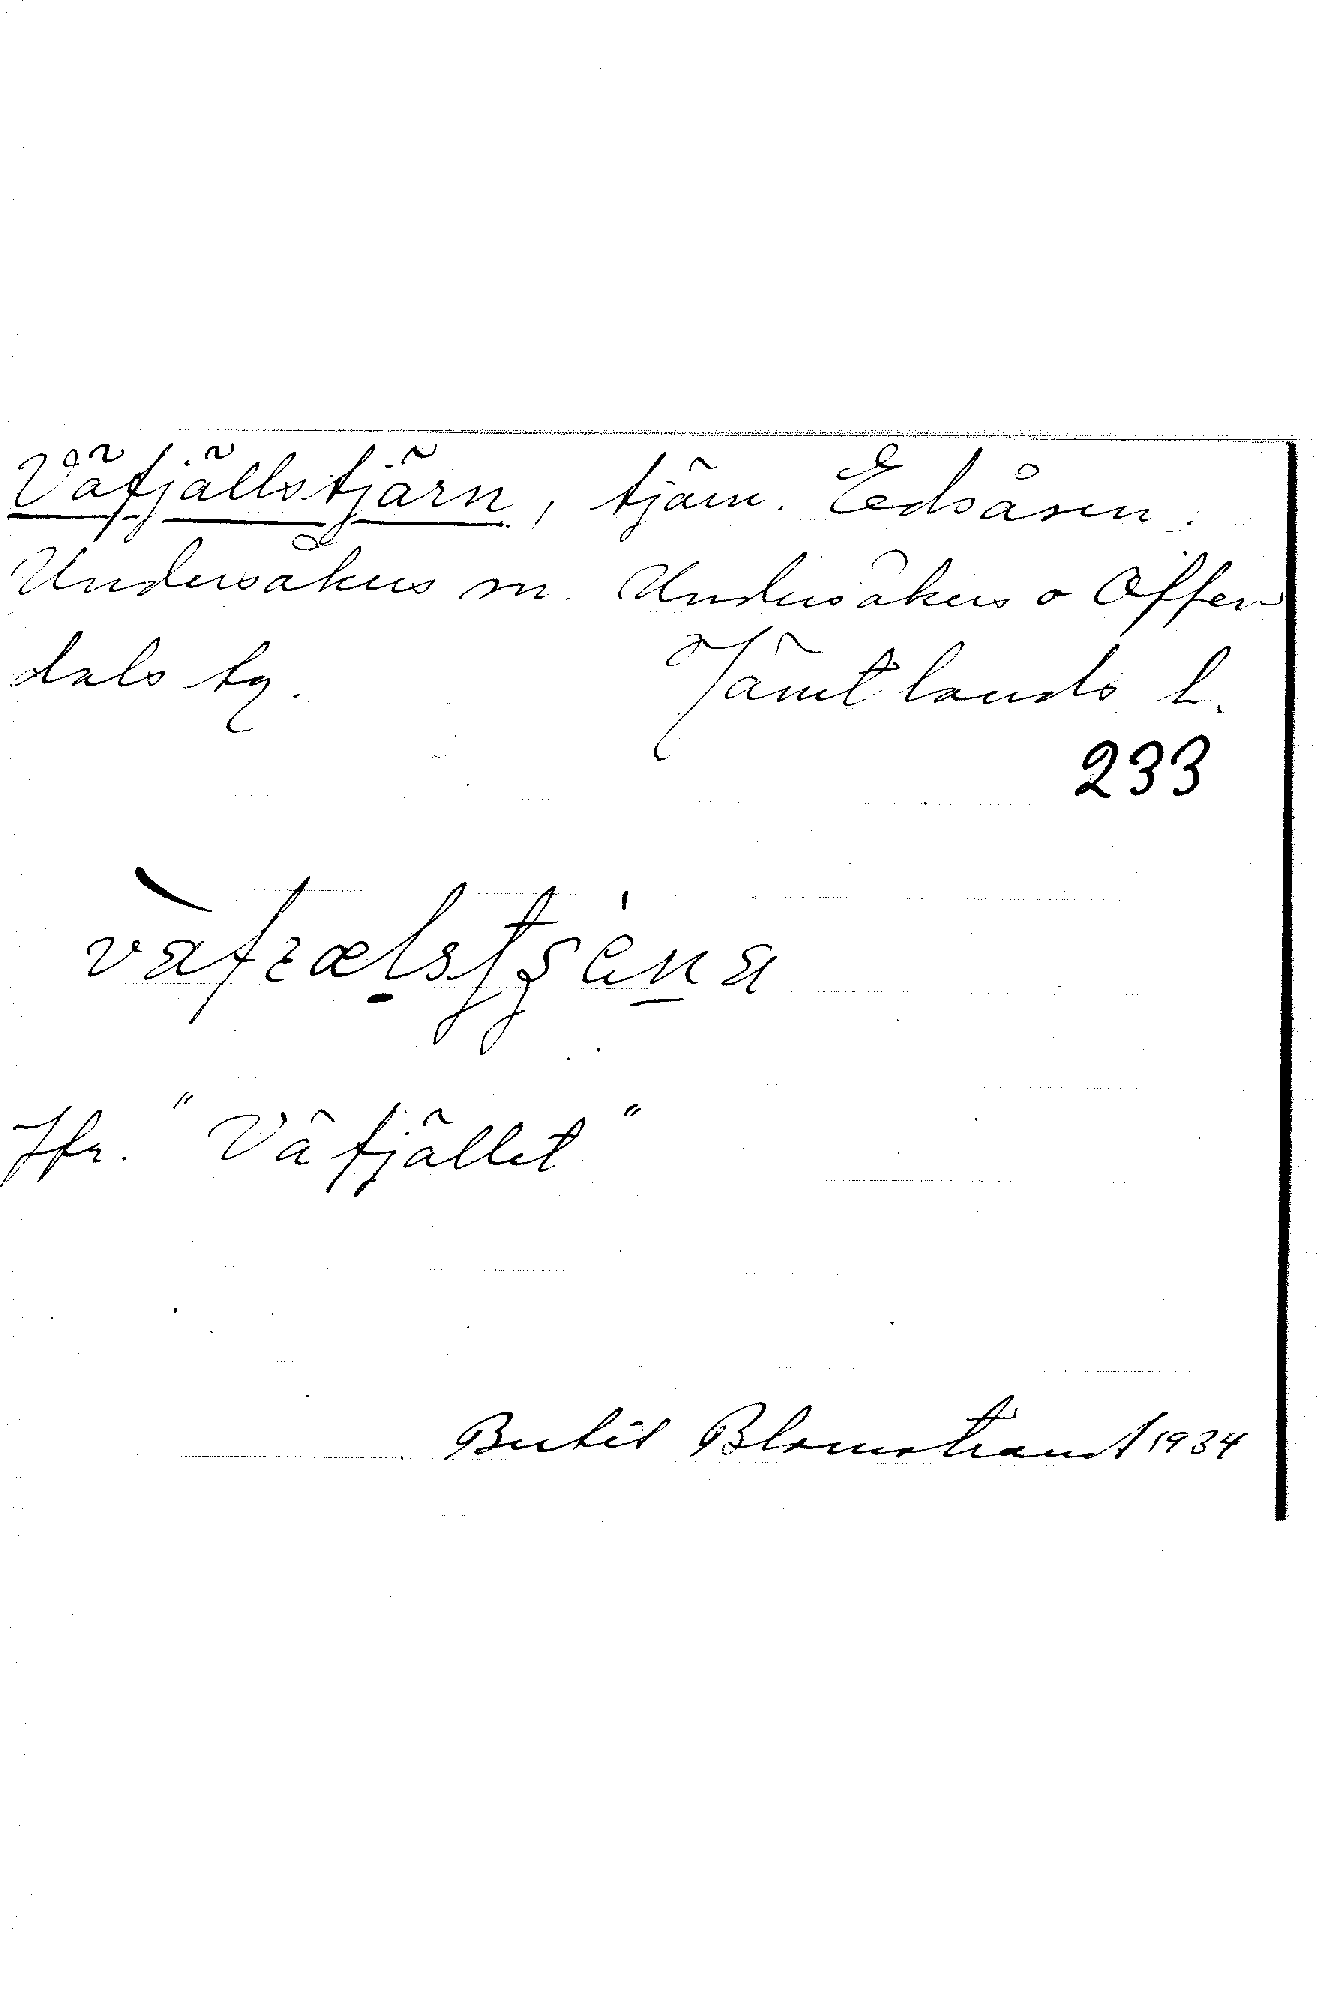 Väfjällstjärn, tjärn. Edsåsen.
Undersåkers sn. Undersåkers o Offer
dals tg. Jämtlands l.
233
Jfr. "Väfjället"
Bertil Blomstrand 1934